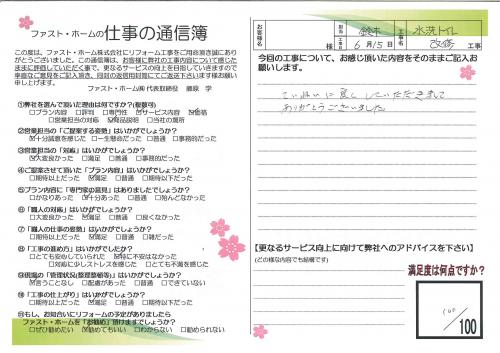 ファスト・ホームの仕事の通信簿
この度は、ファスト・ホーム株式会社にリフォーム工事をご用命頂き誠にあり
がとうございました。この通信簿は、お客様に弊社の工事内容について感じた
ままに評価していただく事で、更なるサービスの向上を目指していきますので
率直なご意見をご記入頂き、同封の返信用封筒にてご返送下さいます様お願い
申し上げます。
ファスト・ホーム㈱ 代表取締役 藤原 学
①弊社を選んで頂いた理由は何ですか?(複数可)
□プラン内容 □評判 □専門性 ☑サービス内容 ☑価格
□営業担当の対応 ☑商品説明 □当社の雰囲気
②営業担当の「ご提案する姿勢」はいかがでしょうか?
☑十分誠意を感じた □一生懸命だった □普通 □事務的だった
③営業担当の「対応」はいかがでしょうか?
☑大変良かった □満足 □普通 □事務的だった
④ご提案させて頂いた「プラン内容」はいかがでしょうか?
□期待以上だった ☑満足 □普通 □期待以下だった
⑤プラン内容に「専門家の意見」はありましたでしょうか?
□かなりあった ☑十分あった □普通 □殆んどなかった
⑥「職人の対応」はいかがでしょうか?
□大変良かった ☑満足 □普通 □良くなかった
⑦「職人の仕事の姿勢」はいかがでしょうか?
□期待以上だった ☑満足 □普通 □雑だった
⑧「工事の進め方」はいかがでしたか?
□とても安心していられた ☑特に不安はなかった
□対応に少しストレスを感じた □とても不満を感じた
⑨現場の「管理状況(整理整頓等)」はいかがでしたか?
☑言うことなし □配慮があった □普通 □できていない
⑩「工事の仕上がり」はいかがでしょうか?
□期待以上だった ☑満足 □普通 □期待以下だった
⑪もし、お知合いにリフォームの予定がありましたら
ファスト・ホームを「お勧め」頂けますでしょうか?
□ぜひ勧めたい ☑勧めてもいい □わからない □勧められない
お客様名
様
担当
鈴木
工事日
6月15日
工事名
水洗トイレ
改修
今回の工事について、お感じ頂いた内容をそのままご記入お
願いします。
ていねいに良くしていただきまして
ありがとうございました
【更なるサービス向上に向けて弊社へのアドバイスを下さい】
(どの様な内容でも結構です)
満足度は何点ですか?
100
/100